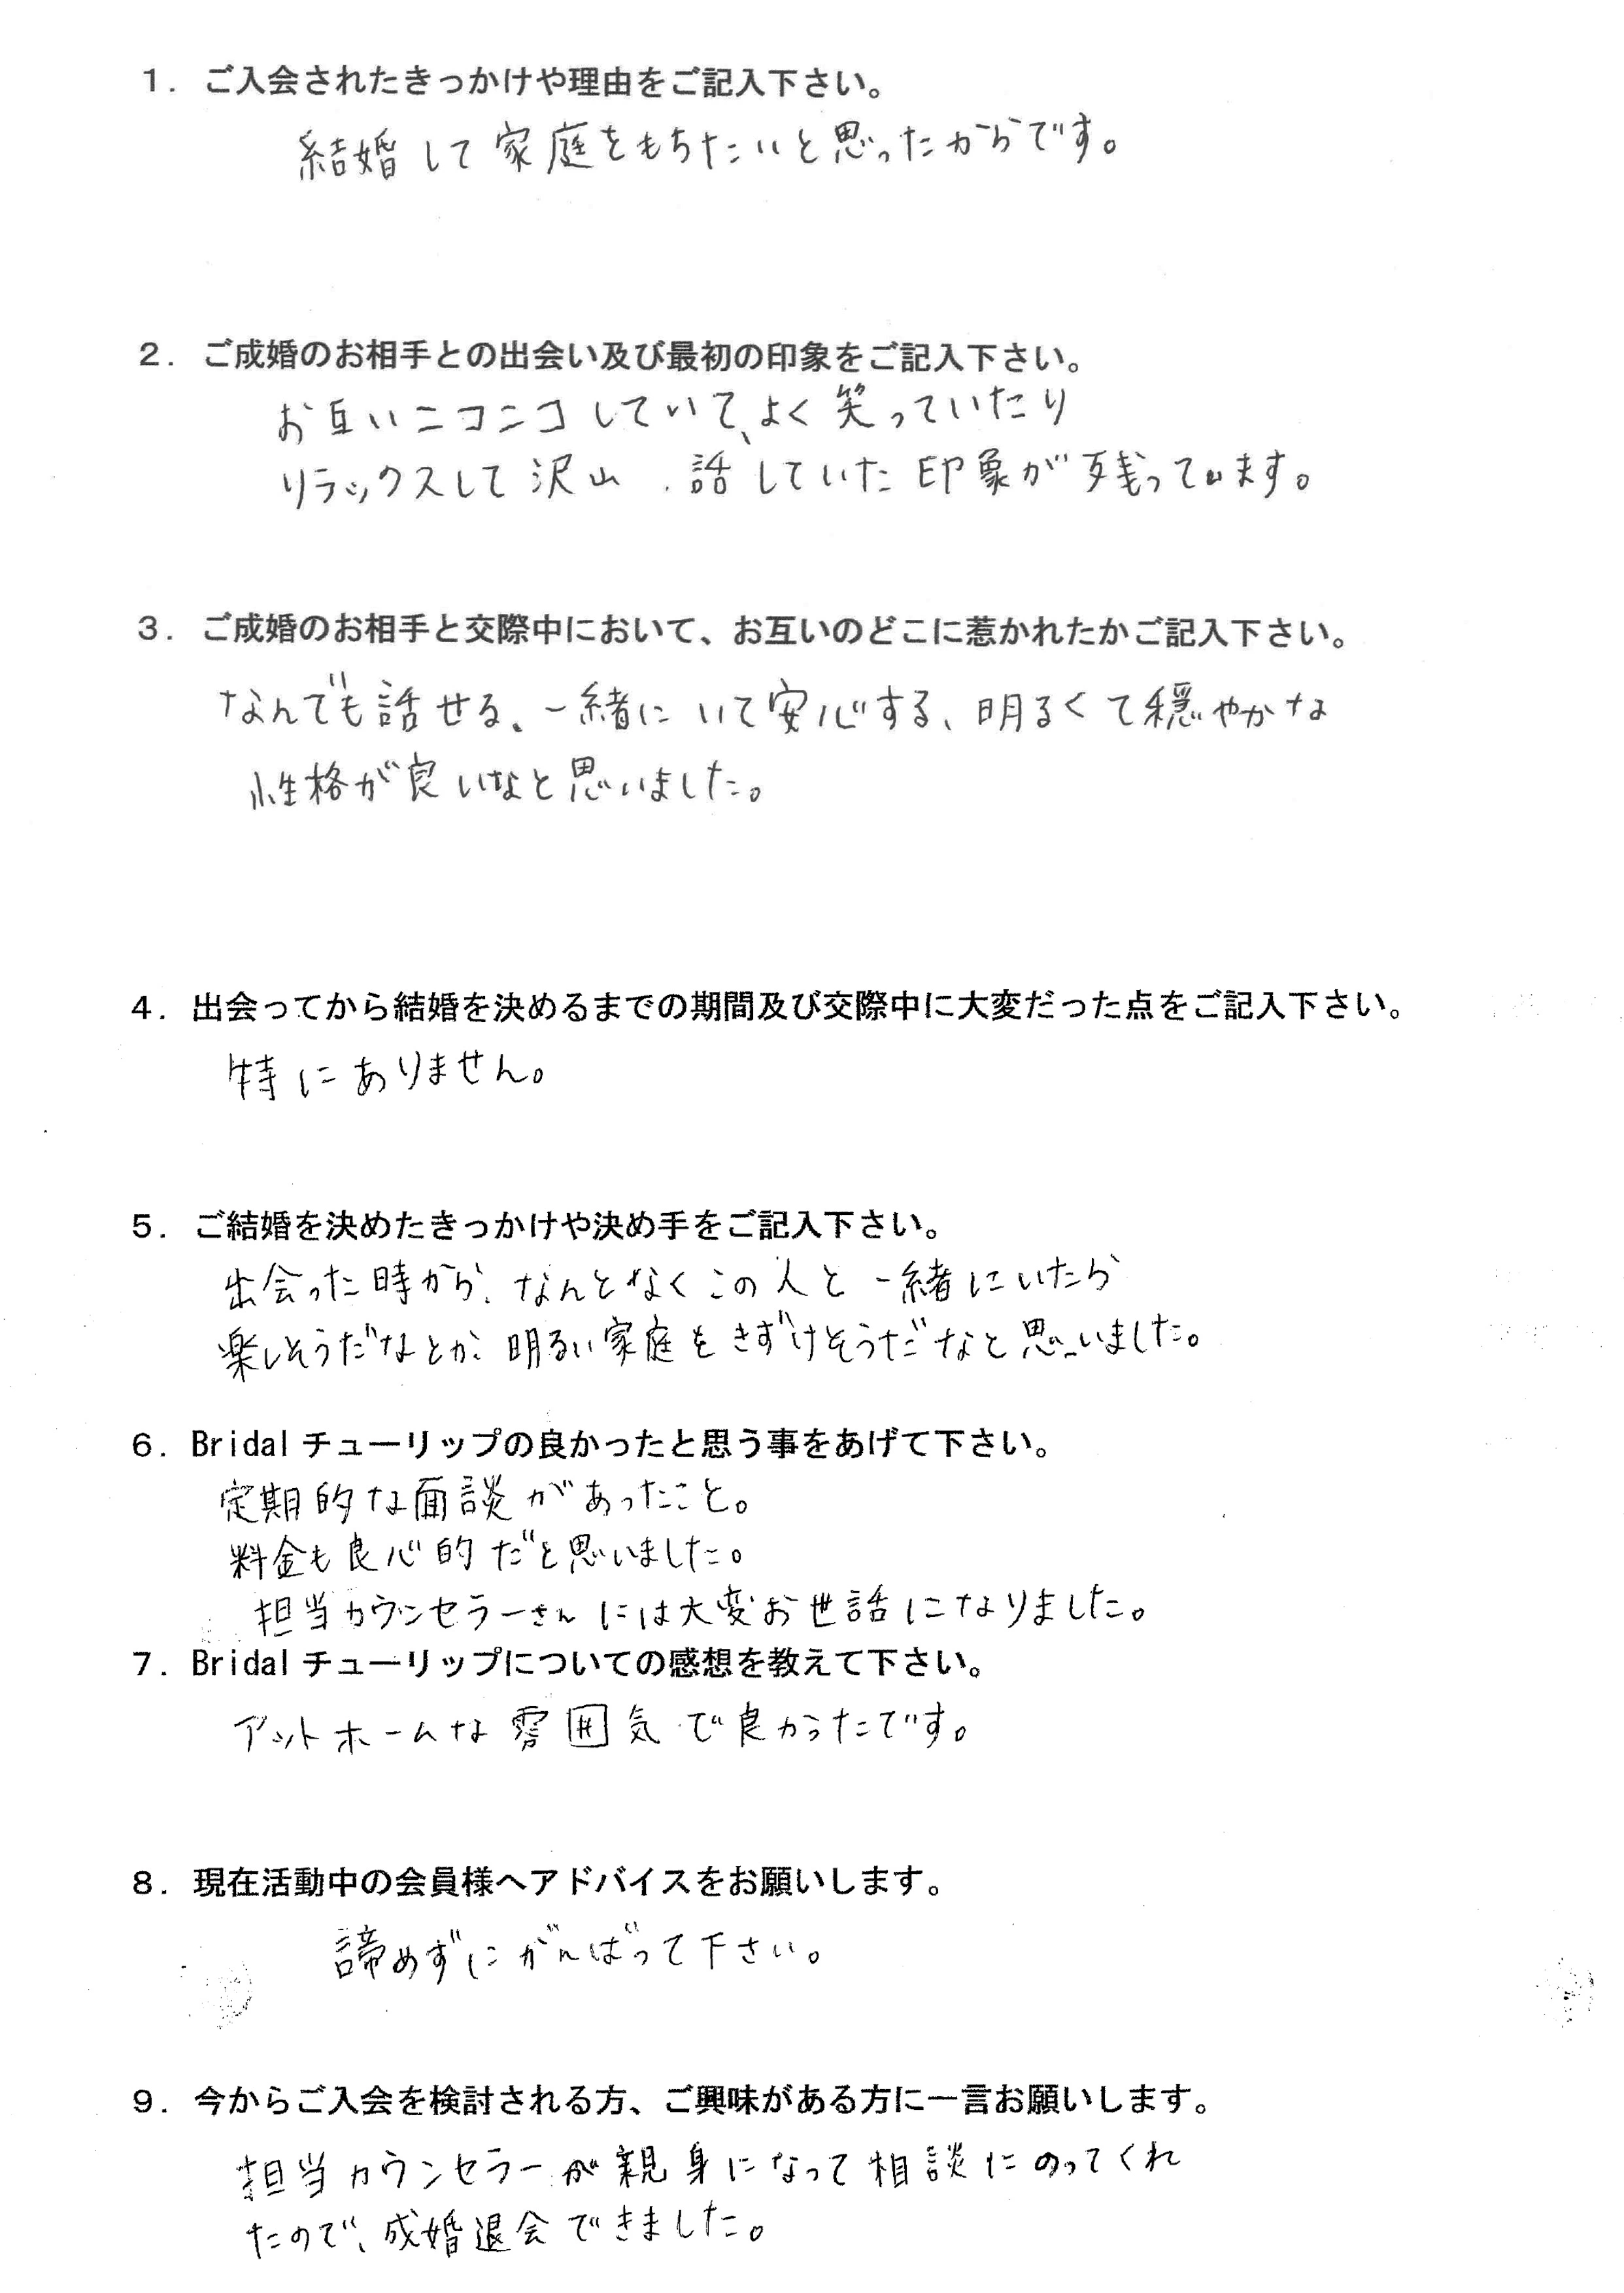 １．ご入会されたきっかけや理由をご記入下さい。
結婚して家庭をもちたいと思ったからです。
２．ご成婚のお相手との出会い及び最初の印象をご記入下さい。
お互いニコニコしていて、よく笑っていたり
リラックスして沢山、話していた印象が残っています。
３．ご成婚のお相手と交際中において、お互いのどこに惹かれたかご記入下さい。
なんでも話せる、一緒にいて安心する、明るくて穏やかな
性格が良いなと思いました。
４．出会ってから結婚を決めるまでの期間及び交際中に大変だった点をご記入下さい。
特にありません。
５．ご結婚を決めたきっかけや決め手をご記入下さい。
出会った時から、なんとなくこの人と一緒にいたら
楽しそうだなとか、明るい家庭をきずけそうだなと思いました。
６．Bridalチューリップの良かったと思う事をあげて下さい。
定期的な面談があったこと。
料金も良心的だと思いました。
担当カウンセラーさんには大変お世話になりました。
７．Bridalチューリップについての感想を教えて下さい。
アットホームな雰囲気で良かったです。
８．現在活動中の会員様へアドバイスをお願いします。
諦めずにがんばって下さい。
９．今からご入会を検討される方、ご興味がある方に一言お願いします。
担当カウンセラーが親身になって相談にのってくれ
たので、成婚退会できました。